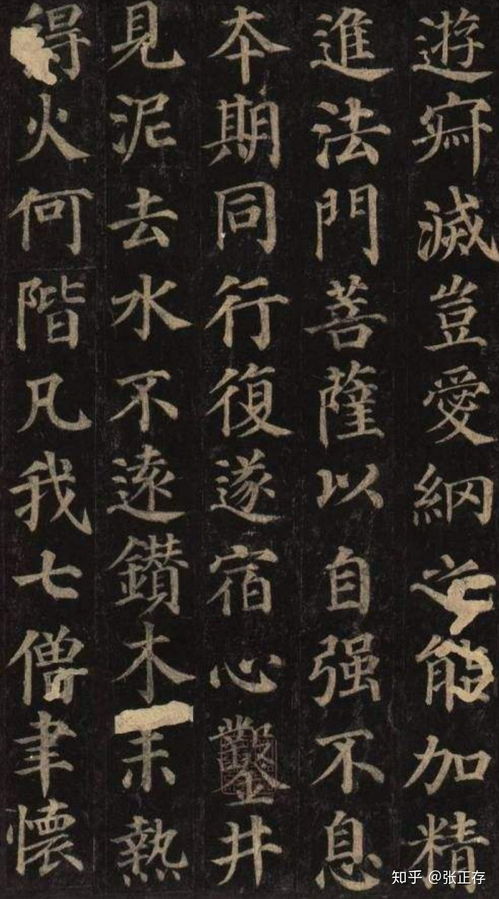 遊寂滅豈愛網之能加精
進法門菩薩以自强不息
本期同行復遂宿心鑿井
見泥去水不遠鑽木未熱
得火何階凡我七僧聿懷
知乎 @张正存